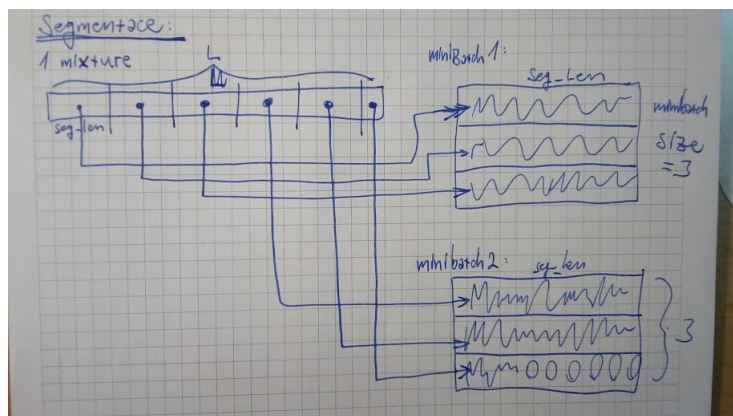 Segmentace:
1 mixture
L
seg_len
minibatch 1:
seg_len
minibatch
size
=3
minibatch 2:
seg_len
3
000000